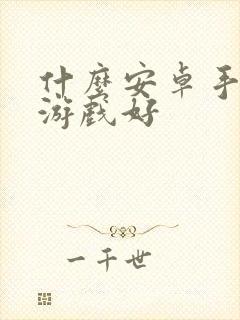 什麼安卓手
游戲好
一千世